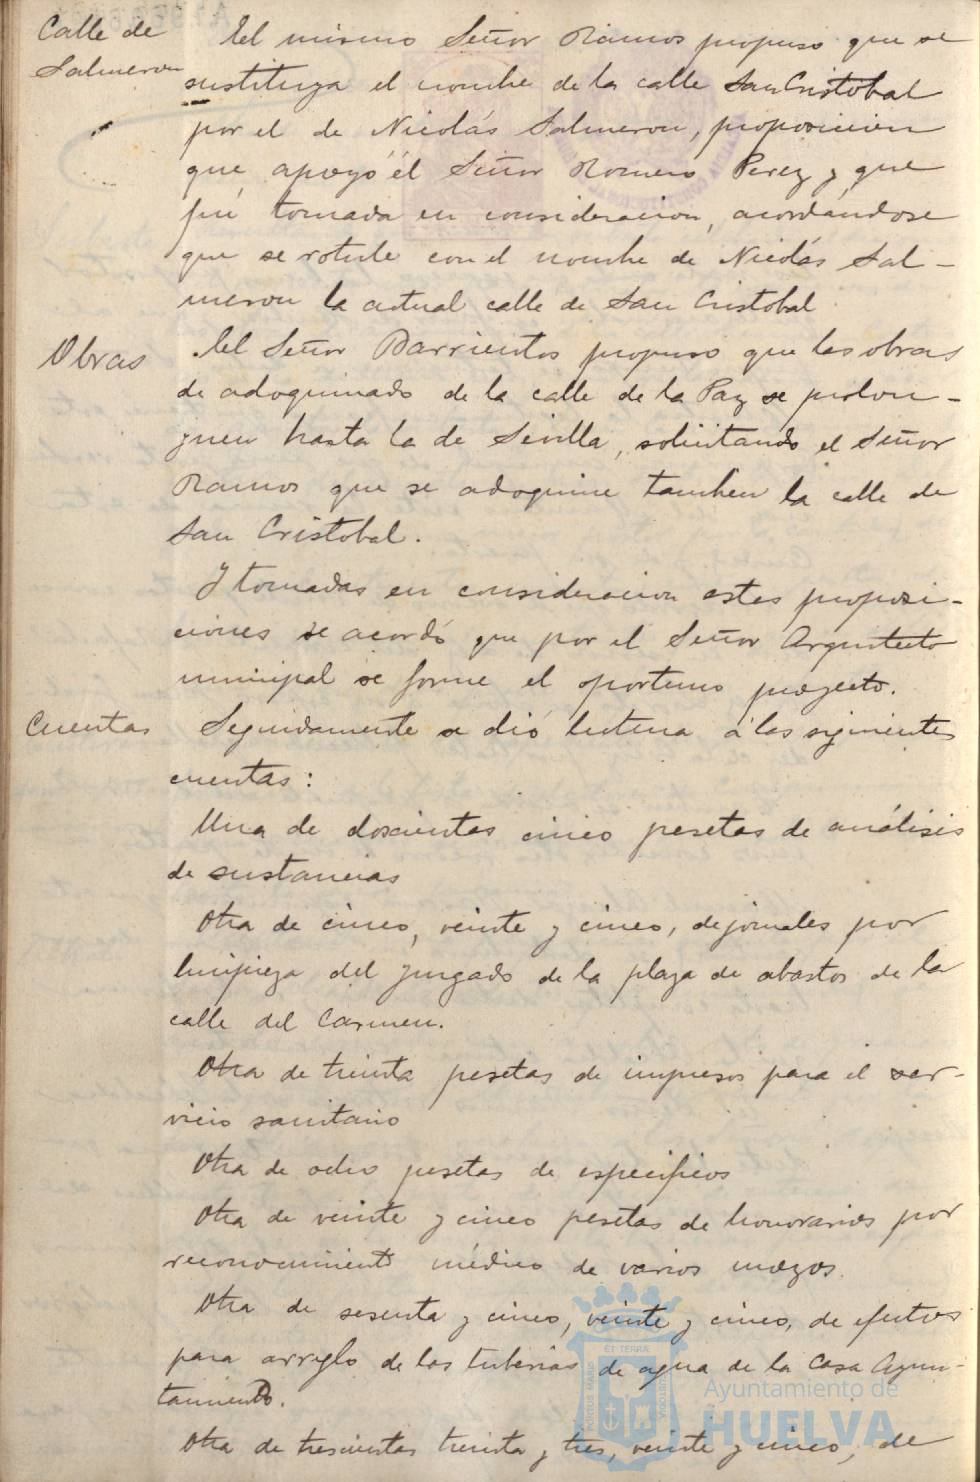 Calle de
Salmeron
El mismo Señor Ramos propuso que se
sustituya el nombre de la calle San Cristobal
por el de Nicolás Salmeron, proposicion
que apoyó él Señor Romero Perez y que
fué tomada en consideracion, acordándose
que se rotule con el nombre de Nicolás Sal-
meron la actual calle de San Cristobal
Obras
El Señor Barrientos propuso que las obras
de adoquinado de la calle de la Paz se prolon-
guen hasta la de Sevilla, solicitando el Señor
Ramos que se adoquine tambien la calle de
San Cristobal.
Y tomadas en consideracion estas proposi-
ciones se acordó que por el Señor Arquitecto
municipal se forme el oportuno proyecto.
Cuentas
Seguidamente se dió lectura á las siguientes
cuentas:
Una de doscientas cinco pesetas de análisis
de sustancias
Otra de cinco, veinte y cinco, de jornales por
limpieza del juzgado de la plaza de abastos de la
calle del Carmen.
Otra de treinta pesetas de impresos para el ser-
vicio sanitario
Otra de ocho pesetas de especificos
Otra de veinte y cinco pesetas de honorarios por
reconocimiento médico de varios mozos.
Otra de sesenta y cinco, veinte y cinco, de efectos
para arreglo de las tuberias de agua de la Casa Ayun-
tamiento.
Otra de trescientas treinta y tres, veinte y cinco, de
ET TERRÆ
PORTUS MARIS
CUSTODIA
Ayuntamiento de
HUELVA